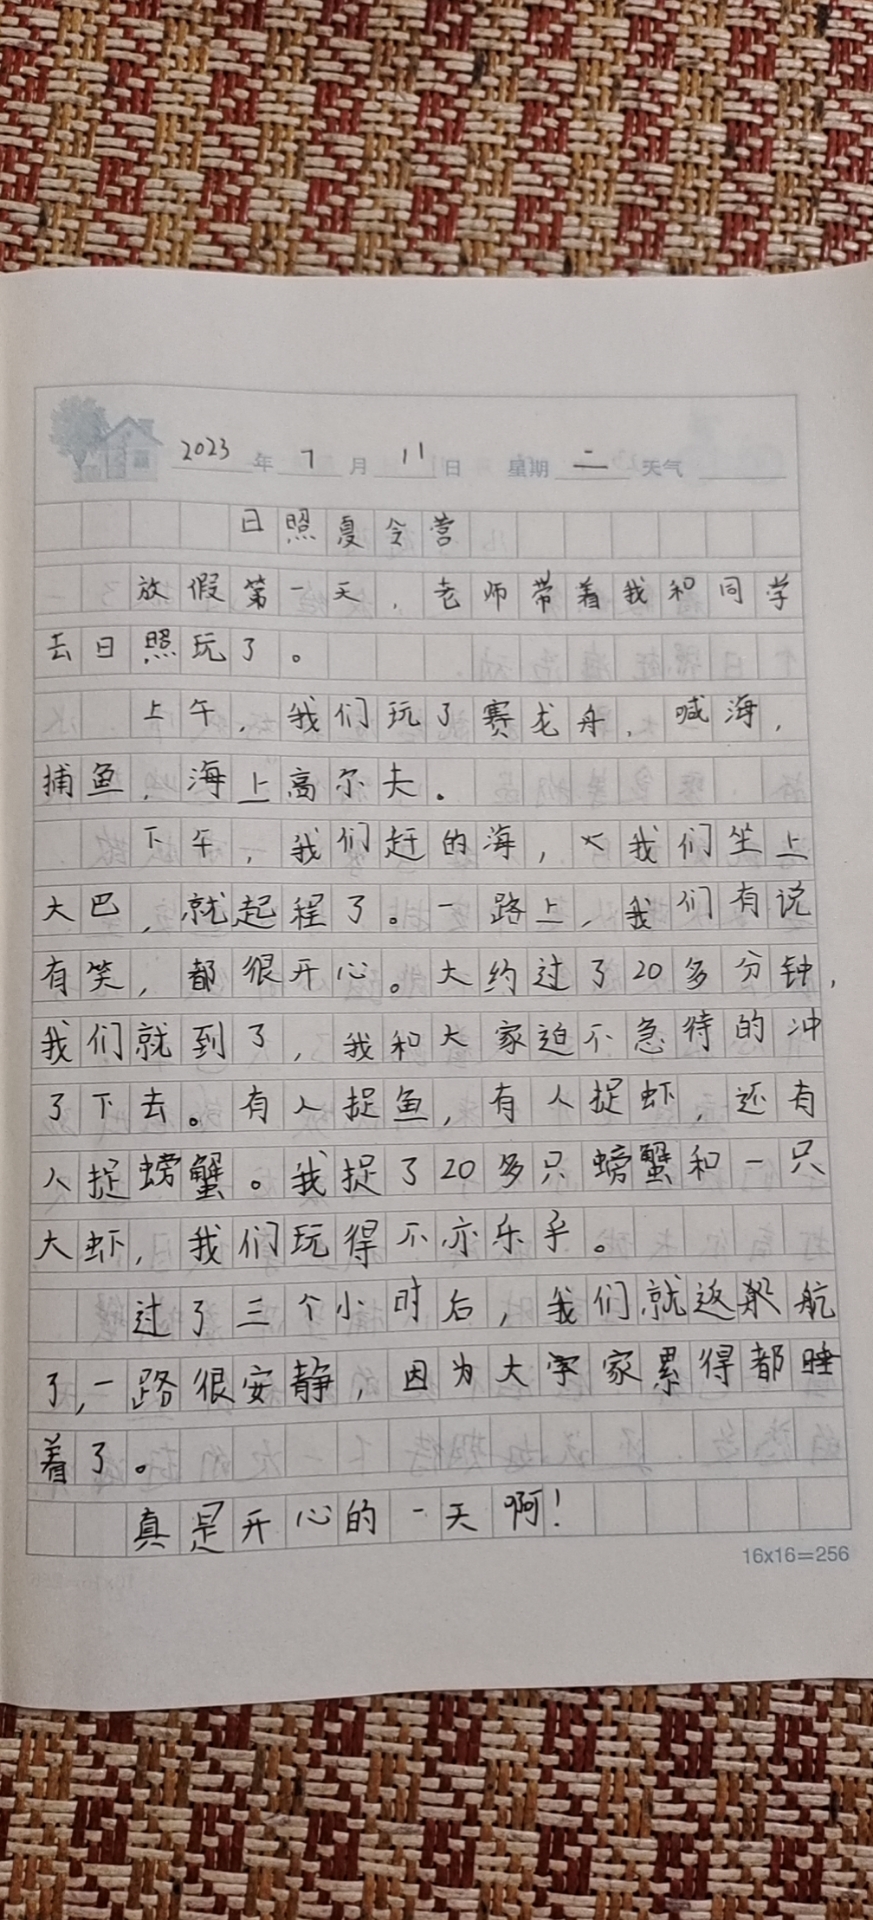 2023 年 7 月 11 日 星期 二 天气
日照夏令营
放假第一天，老师带着我和同学
去日照玩了。
上午，我们玩了赛龙舟，喊海，
捕鱼，海上高尔夫。
下午，我们赶的海，我们坐上
大巴，就起程了。一路上，我们有说
有笑，都很开心。大约过了20多分钟，
我们就到了，我和大家迫不急待的冲
了下去。有人捉鱼，有人捉虾，还有
人捉螃蟹。我捉了20多只螃蟹和一只
大虾，我们玩得不亦乐乎。
过了三个小时后，我们就返航
了，一路很安静，因为大家累得都睡
着了。
真是开心的一天啊！
16x16=256